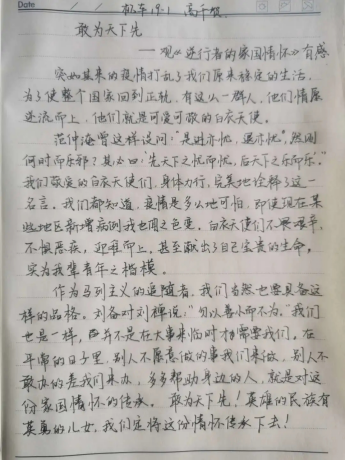 Date
机车19.1 高千
敢为天下先
——观《逆行者的家国情怀》有感
突如其来的疫情打乱了我们原来稳定的生活,
为了使整个国家回到正轨,有这么一群人,他们情愿
逆流而上,他们就是可爱可敬的白衣天使。
范仲淹曾这样设问:"是进亦忧,退亦忧。"然则
何时而乐耶?其必曰"先天下之忧而忧,后天下之乐而乐。"
我们敬爱的白衣天使们,身体力行,完美地诠释了这一
名言。我们都知道,疫情是多么地可怕,即使现在某
些地区新增病例我也闻之色变。白衣天使们不畏艰辛,
不惧恶疾,迎难而上,甚至献出了自己宝贵的生命。
实为我辈青年之楷模。
作为马列主义的追随者,我们当然也要具备这
样的品格。刘备对刘禅说,"勿以善小而不为。"我们
也是一样,并不是在大事来临时才需要我们。在
平常的日子里,别人不愿意做的事我们来做,别人不
敢办的差我们来办,多多帮助身边的人,就是对这
份家国情怀的传承。敢为天下先!英雄的民族有
英勇的儿女,我们定将这份情怀传承下去!